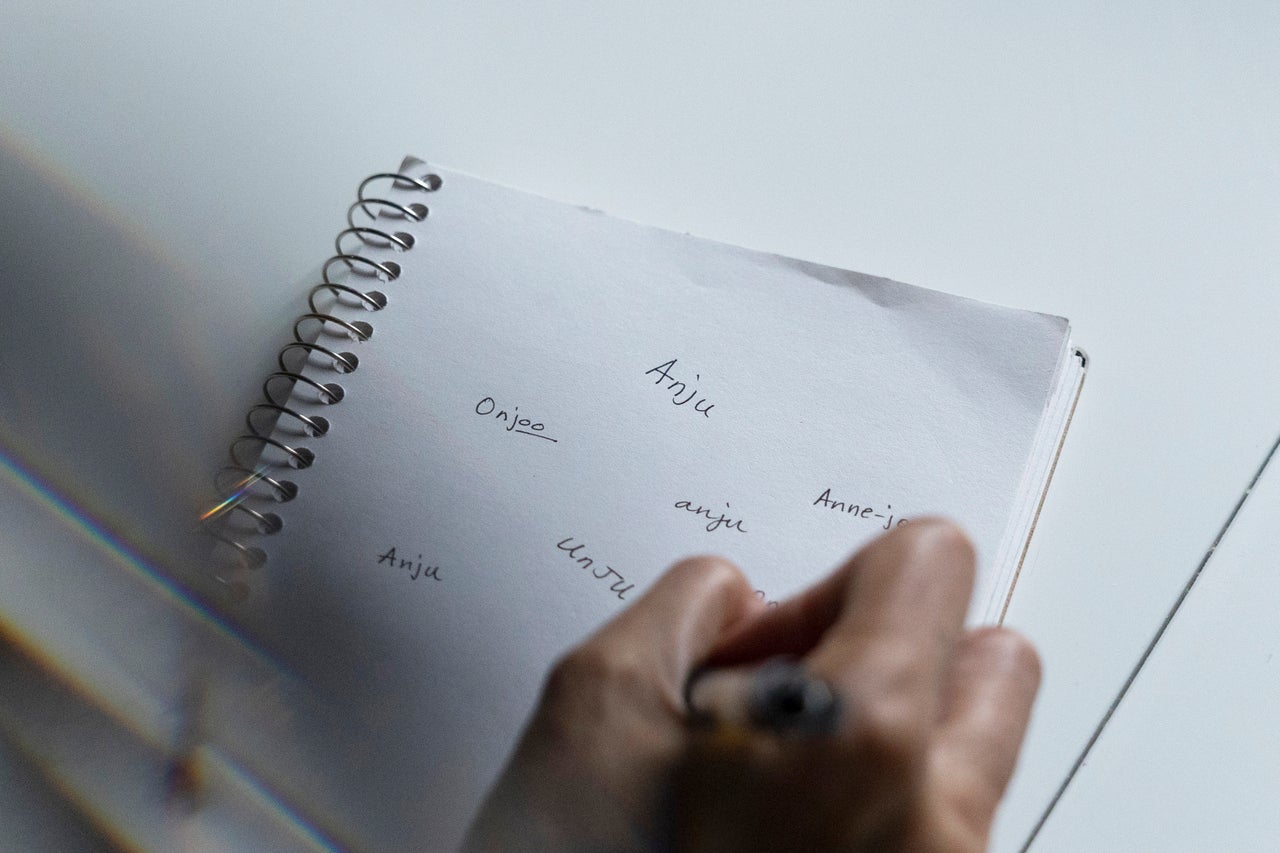 Anju
Onjoo
anju
Anne-jo
Anju
UnJU